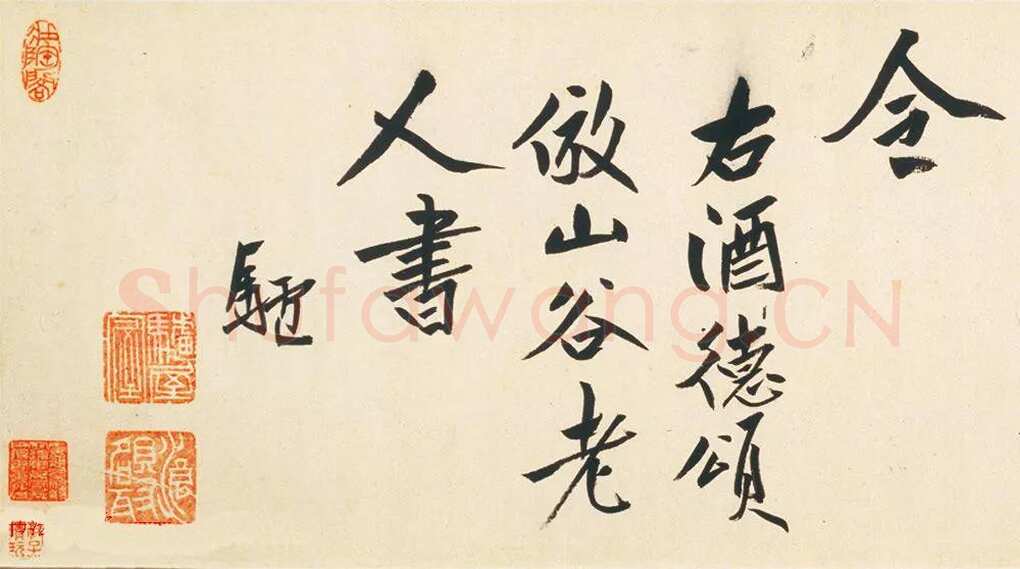 令
右酒德頌
倣山谷老
人書
驢
Shufawang.CN